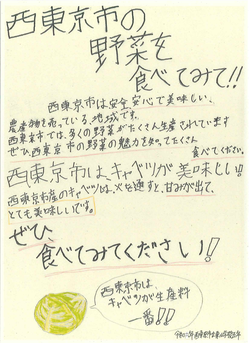 西東京市の
野菜を
食べてみて!!
西東京市は、安全、安心で美味しい、
農産物を売っている、地域です。
西東京市では、多くの野菜がたくさん生産されています
ぜひ、西東京市の野菜の魅力を知ってたくさん
食べてください。
西東京市は、キャベツが美味しい!!
西東京市産のキャベツは、火を通すと、甘みが出て、
とても美味しいです。
ぜひ、
食べてみてください!!
西東京市は、
キャベツが生産料
一番!!